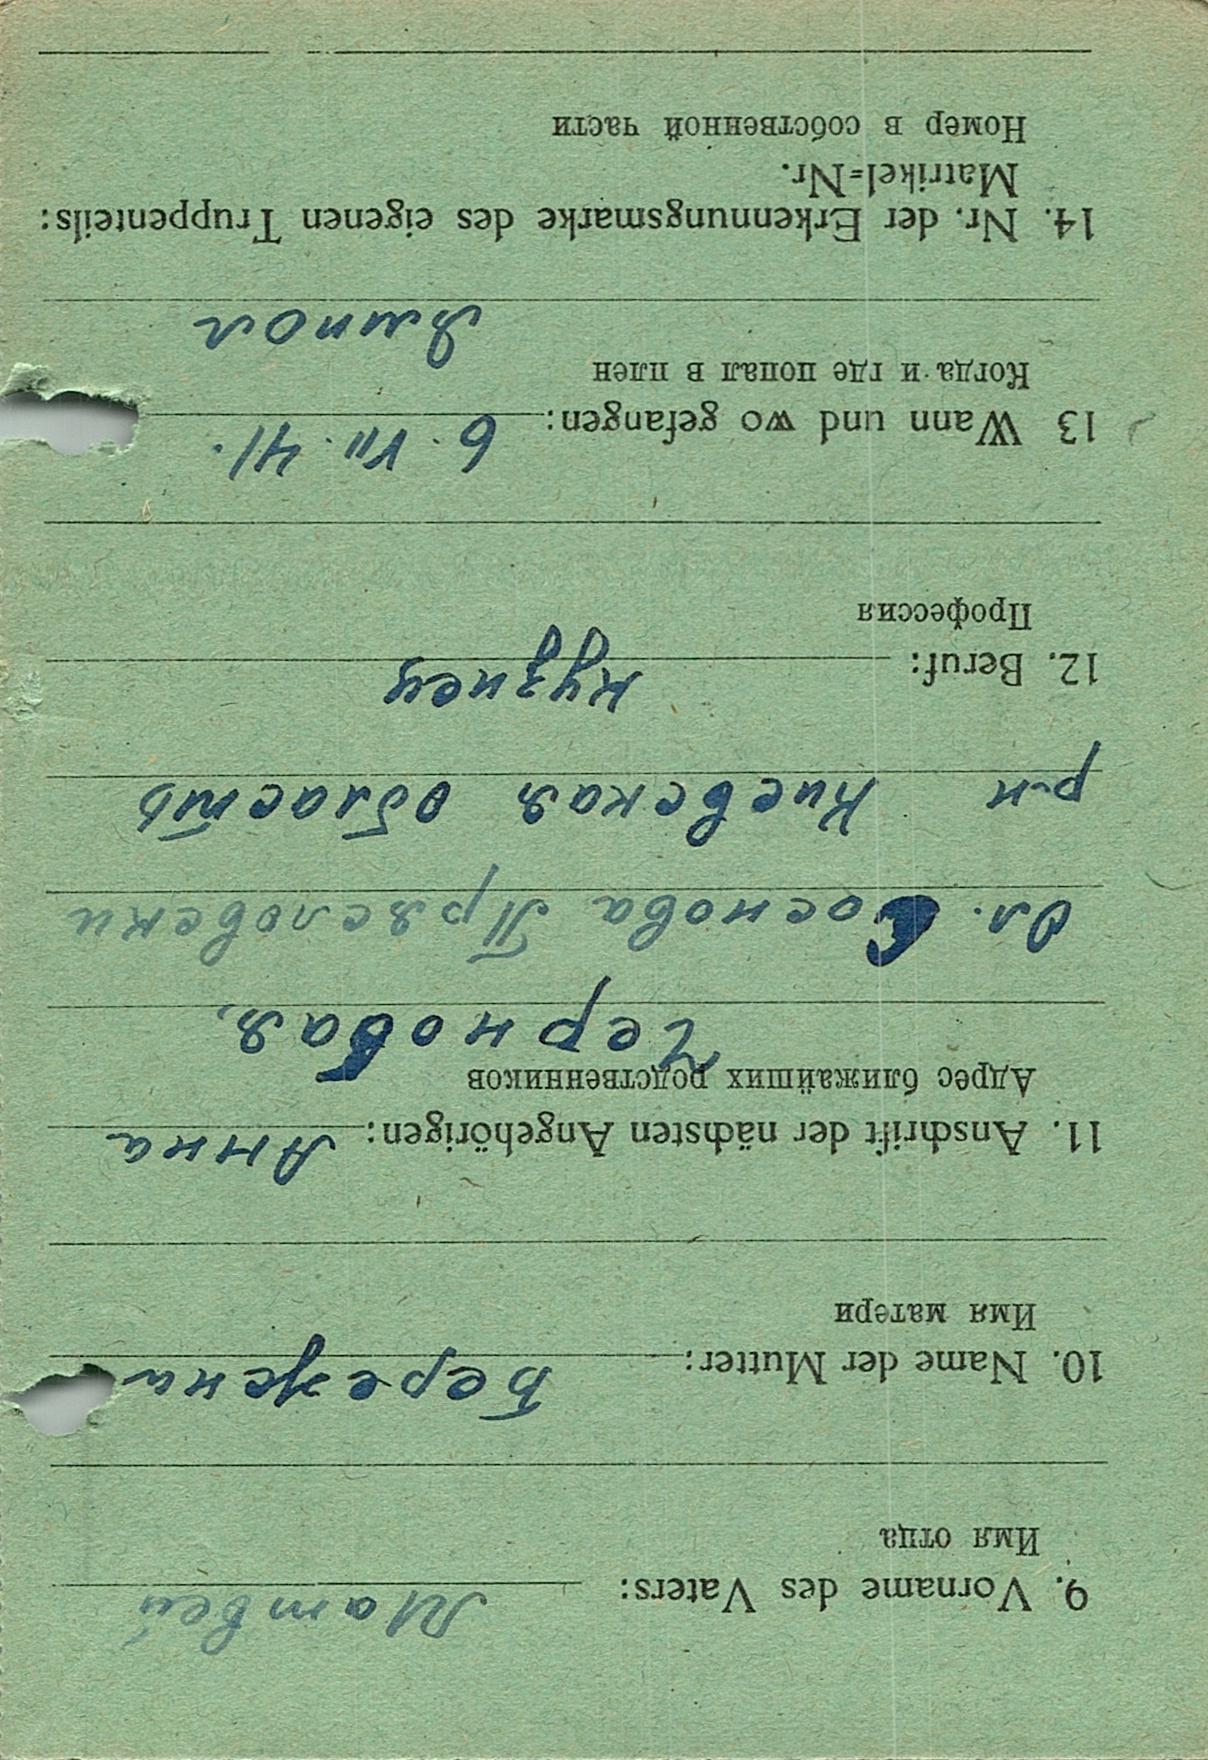 9. Vorname des Vaters: Матвей
Имя отца
10. Name der Mutter: Бережна
Имя матери
11. Anschrift der nächsten Angehörigen: Анна
Адрес ближайших родственников
Черновая,
Ол. Соснова Пряеловски
р-н Киевская область
12. Beruf: кузнец
Профессия
13 Wann und wo gefangen: 6. VII. 41.
Когда и где попал в плен
Ямпол
14. Nr. der Erkennungsmarke des eigenen Truppenteils:
Matrikel=Nr.
Номер в собственной части